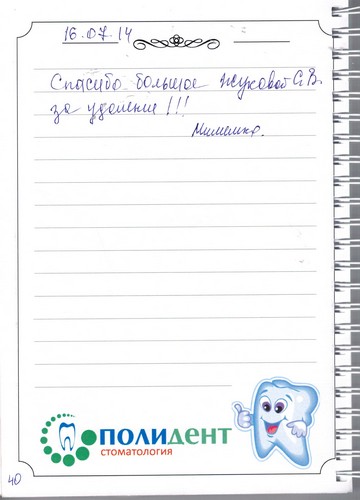 16.07.14
Спасибо большое Жуковой С.В.
за удаление!!!
ПОЛИДЕНТ
СТОМАТОЛОГИЯ
40